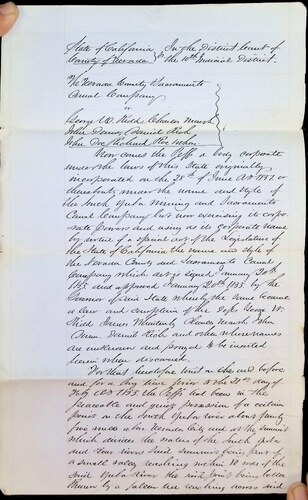 State of California } In the District Court of
County of Nevada } the 10th Judicial District.
The Nevada County & Sacramento
Canal Company
v
George W. Kidd Charles Marsh
John Dunn, Daniel Rich
John Doe, Richard Roe
Now comes the Plff a body corporate
under the laws of this State originally
incorporated on the 28th of June AD 1851 or
thereabouts under the name and style
of the South Yuba Mining and Sacramento
Canal Company but now exercising its corpo-
rate powers and using as its corporate name
by virtue of a special act of the Legislature of
the State of California the name and style of
the Nevada County and Sacramento Canal
Company which act is signed January 20th
1855 and approved January 20th 1855 by the
Governor of said State whereby the same became
a law and complains of the Defts George W.
Kidd Charles Marsh John
Dunn Daniel Rich and others whose names
are unknown and prayed to be inserted
herein when discovered.
For that heretofore to wit on the and before
and for a long time prior to the 21st day of
July AD 1855 the Plff had been in the
peaceable and quiet possession of a certain
point on the South Yuba river about twenty
five miles above Nevada City and at the Summit
which divides the waters of the South Yuba
and Bear rivers said Summit being part of
a small valley reaching within 10 rods of the
said Yuba river the said point being better
known by a fallen tree laying across said